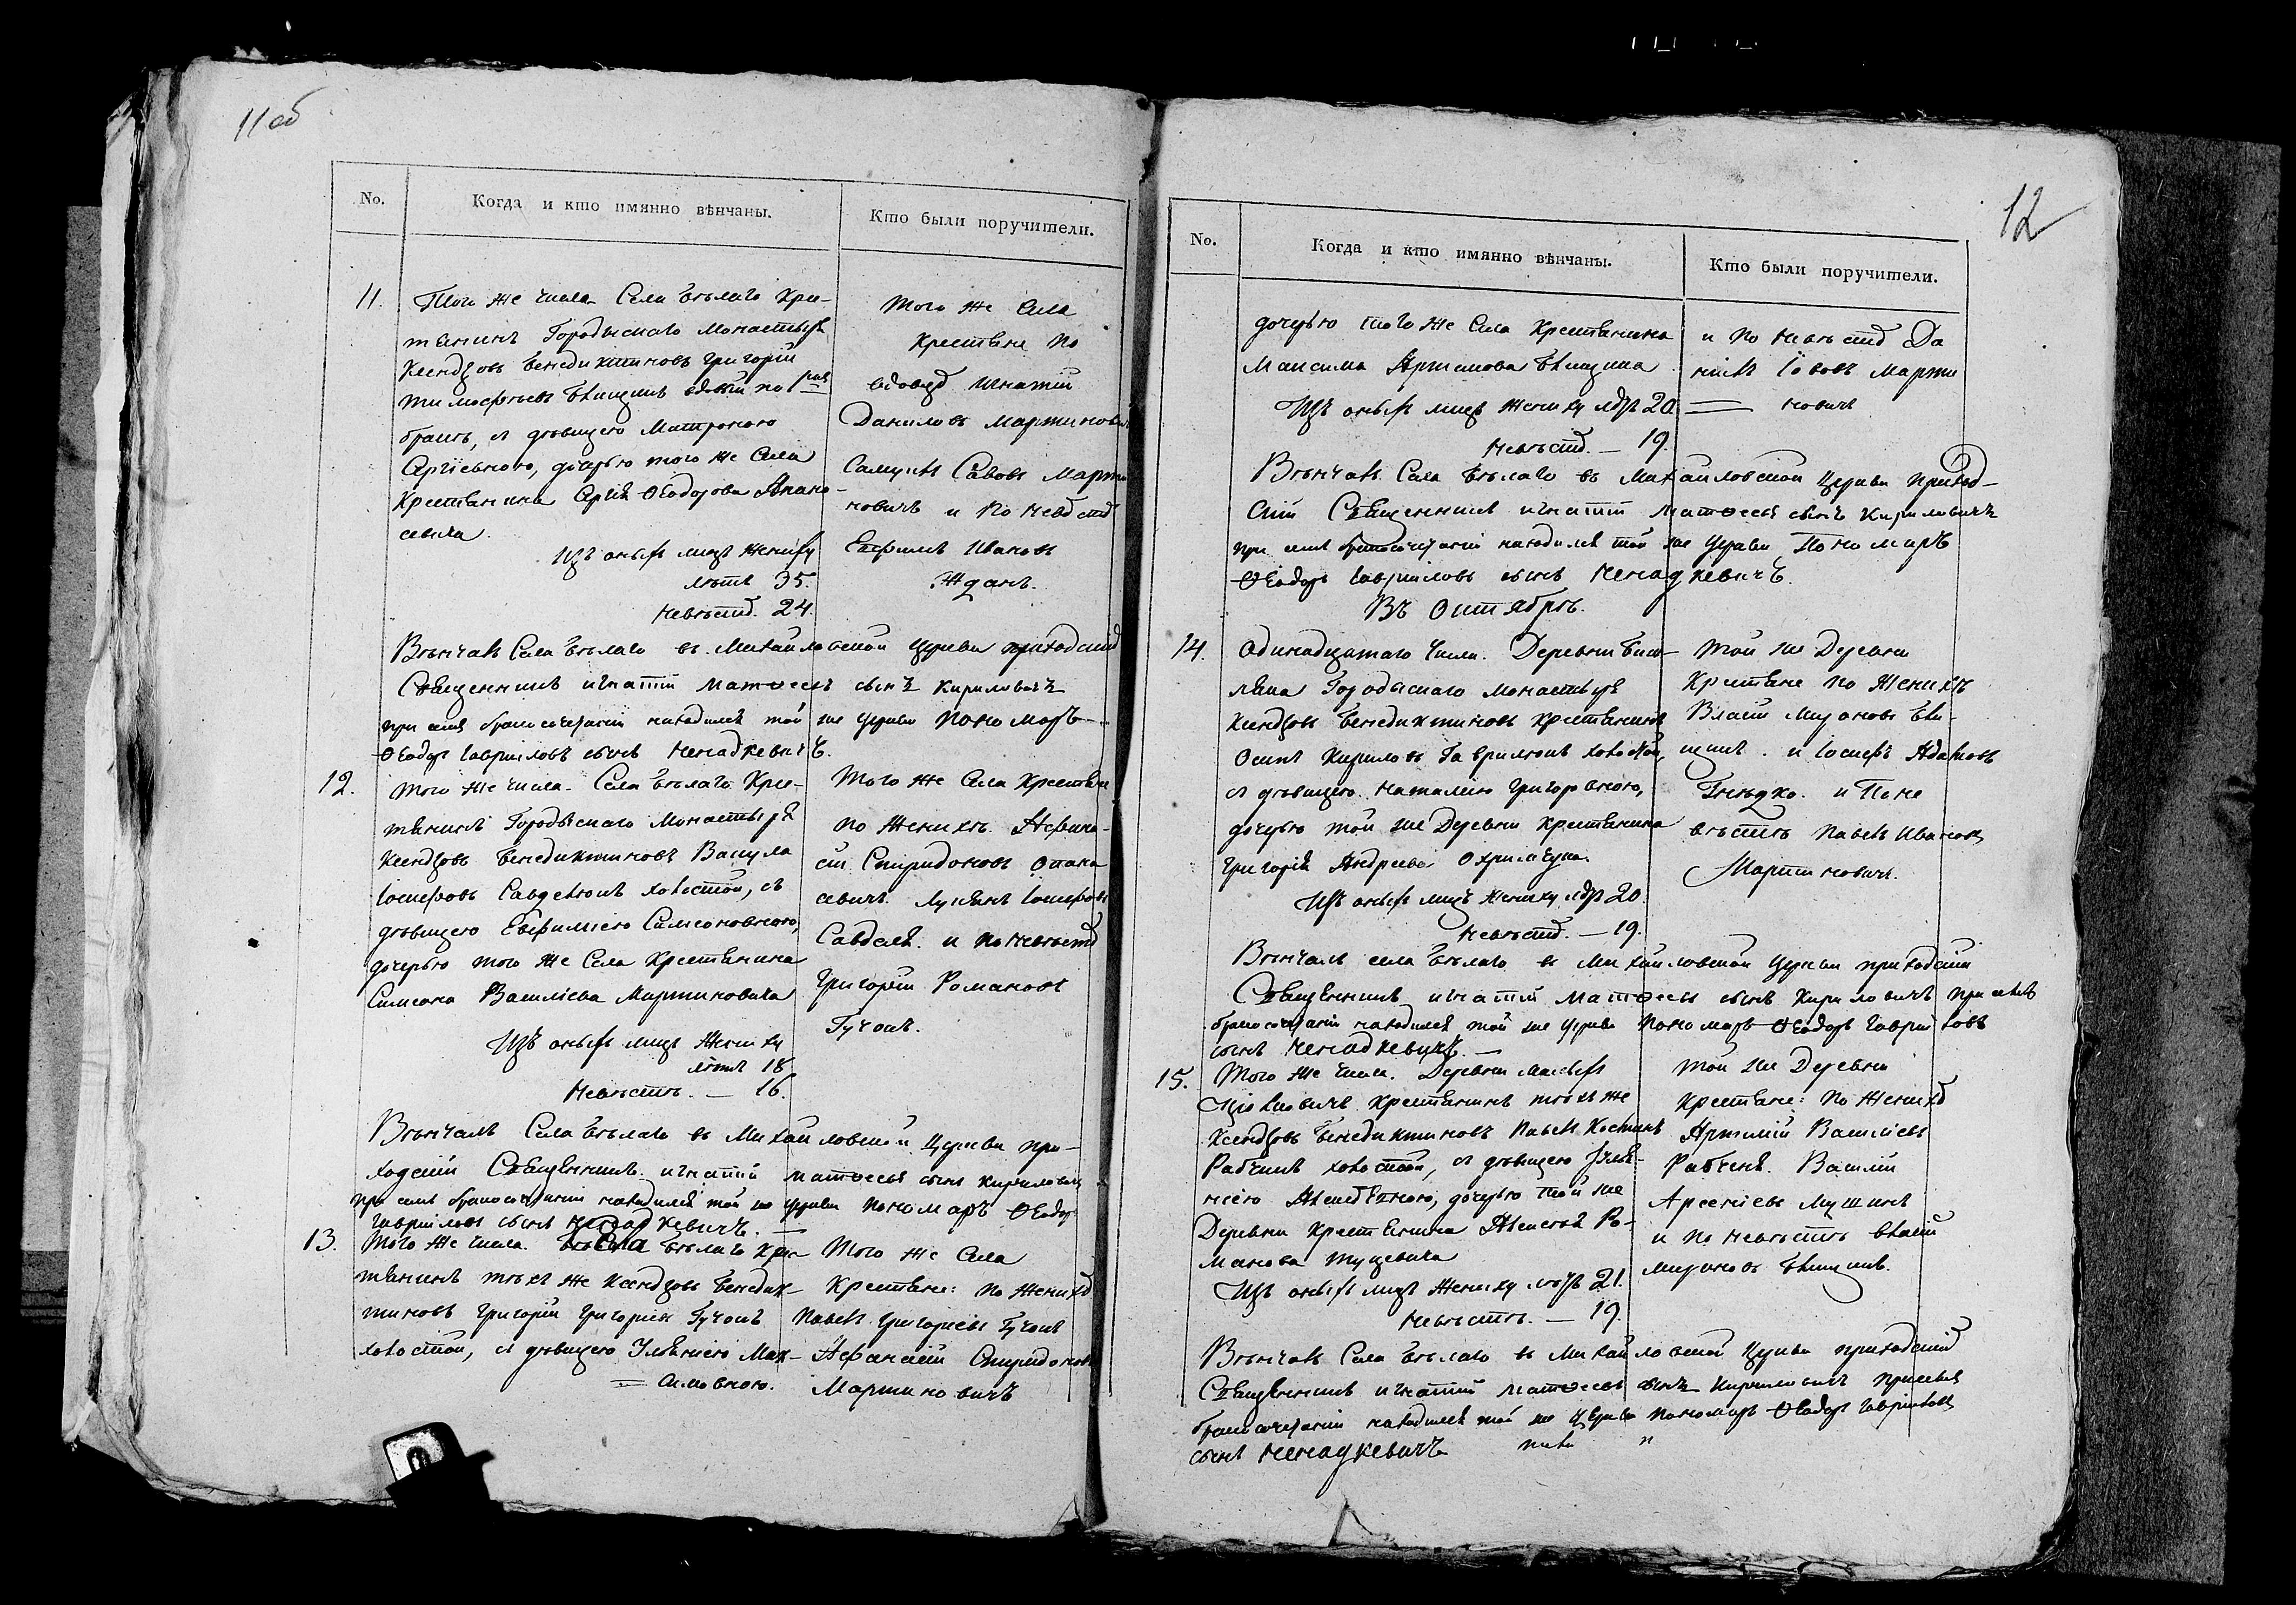 11 об
No.
Когда и кто имянно вѣнчаны.
Кто были поручители.
11.
Того же числа Села Бѣлаго Кре-
стянинъ Городыскаго Монастыря
Ксендзовъ Бенедиктиновъ Григорій
Тимофѣевъ
бракъ, съ дѣвицею Матроною
Сергіевною, дочерью того же Села
Крестянина Сергія Ѳеодорова Апана-
севича
Изъ оныхъ лицъ жениху
лѣтъ 35.
Невѣстѣ. 24.
того же Села
Крестяне по
вдовцѣ Игнатій
Даниловъ Мартинович
Самуилъ Савовъ Марти
новичъ и по невѣстѣ
Евфимъ Ивановъ
Жданъ.
Вѣнчалъ Села Бѣлаго въ Михайловской Церкви приходскій
Священникъ Игнатій Матѳеевъ сынъ Кириловичъ
при семъ бракосочетаніи находился той же Церкви Пономаръ
Ѳеодоръ Гавриловъ сынъ Ненадкевичъ.
12.
Того же числа. Села Бѣлаго Кре-
стянинъ Городыскаго Монастыря
Ксендзовъ Бенедиктиновъ Вакула
Іосифовъ Савденюкъ холостой, съ
дѣвицею Евфиміею Симеоновною,
дочерью того же Села Крестянина
Симеона Василіева Мартиновича
Изъ оныхъ лицъ Жениху
лѣтъ 18
Невѣстѣ. — 16.
Того же Села Крестяне
по Женихѣ. Афана-
сій Спиридоновъ Опана
севичъ. Лукянъ Іосифовъ
Савдей. и по невѣстѣ
Григорій Романовъ
Гучокъ.
Вѣнчалъ Села Бѣлаго въ Михайловской Церкви при-
ходскій Священникъ Игнатій Матѳеевъ сынъ Кириловичъ
при семъ бракосочетаніи находился той же Церкви Пономаръ Ѳеодоръ
Гавриловъ сынъ Ненадкевичъ. —
13.
Того же числа. Села Бѣлаго Кре-
стянинъ тѣхъ же Ксендзовъ Бенедик-
тиновъ Григорій Григоріевъ Гучокъ
холостой, съ дѣвицею Улянією Мак-
симовною.
Того же Села
Крестяне: по Женихѣ
Павелъ Григоріевъ Гучокъ
Афанасій Спиридоновъ
Мартиновичъ
12
No.
Когда и кто имянно вѣнчаны.
Кто были поручители.
дочерью того же Села Крестянина
Максима
Изъ оныхъ лицъ Жениху лѣтъ 20.
Невѣстѣ. — 19.
и по невѣстѣ Да
ніилъ Іововъ Марти
новичъ
Вѣнчалъ Села Бѣлаго въ Михайловской Церкви приход-
скій Священникъ Игнатій Матѳеевъ сынъ Кириловичъ
при семъ бракосочетаніи находился той же Церкви Пономаръ
Ѳеодоръ Гавриловъ сынъ Ненадкевичъ.
Въ Октябрѣ.
14.
Одинадцатаго Числа. Деревни Биш-
ляка Городыскаго Монастыря
Ксендзовъ Бенедиктиновъ Крестянинъ
Осипъ Кириловъ Гаврилюкъ холостой,
съ дѣвицею Наталією Григоровною,
дочерью той же Деревни Крестянина
Григорія Андреева
Изъ оныхъ лицъ Жениху лѣтъ 20.
Невѣстѣ. — 19.
Той же Деревни
Крестяне по Женихѣ
Власій Мироновъ
и Іосифъ Адамовъ
Гнѣдко. и По не
вѣстѣ Павелъ Ивановъ
Мартиновичъ.
Вѣнчалъ села Бѣлаго въ Михайловской Церкви приходскій
Священникъ Игнатій Матѳеевъ сынъ Кириловичъ при семъ
бракосочетаніи находился той же Церкви Пономаръ Ѳеодоръ Гавриловъ
сынъ Ненадкевичъ. —
15.
Того же числа. Деревни Малыхъ
Крестянинъ тѣхъ же
Ксендзовъ Бенедиктиновъ Павелъ
холостой, съ дѣвицею Улья-
нією Алексѣевною, дочерью той же
Деревни Крестянина Алексѣя Ро-
манова
Изъ оныхъ лицъ Жениху лѣтъ 21.
Невѣстѣ. — 19.
Той же Деревни
Крестяне: по Женихѣ
Артемій Василіевъ
Рабченя. Василій
Арсеніевъ
и по невѣстѣ Власій
Мироновъ
Вѣнчалъ Села Бѣлаго въ Михайловской Церкви приходскій
Священникъ Игнатій Матѳеевъ сынъ Кириловичъ при семъ
бракосочетаніи находился той же Церкви Пономаръ Ѳеодоръ Гавриловъ
сынъ Ненадкевичъ